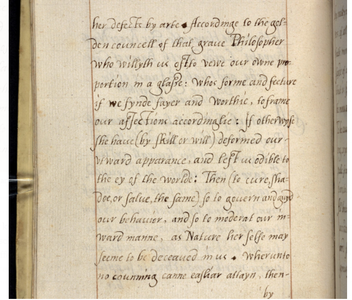 her defects by arte. Accordinge to the gol-
den councell of that grave Philosopher
who willyth us ofte to vewe our owne pro
portion in a glasse: whos forme and fecture
if we fynde fayer and worthie, to frame
our affections accordinglie: if otherwyse
she have (by skill or will) deformed our
utward apparance, and left us odible to
the ey of the worlde: Then (to cure, sha-
doe, or salve, the same) so to govern and
our behavior, and so to moderat our in-
ward manne, as Nature her selfe may
seeme to be deceaved in us. wherunto
no counning canne easliar attayn, then-
by